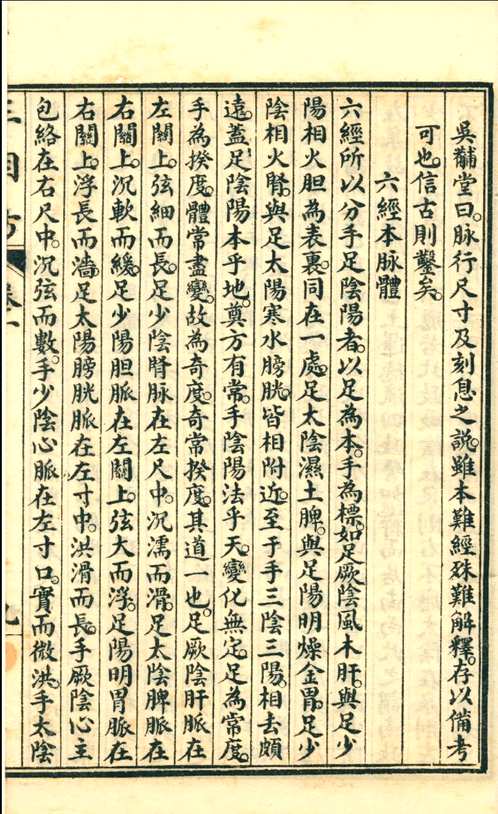 吳黼堂曰。脉行尺寸及刻息之說。雖本難經。殊難解釋。存以備考
可也。信古則鑿矣。
六經本脉體
六經所以分手足陰陽者。以足為本。手為標。如足厥陰風木肝。與足少
陽相火胆為表裏。同在一處。足太陰濕土脾。與足陽明燥金胃。足少
陰相火腎。與足太陽寒水膀胱。皆相附近。至于手三陰三陽。相去頗
遠。蓋足陰陽本乎地。奠方有常。手陰陽法乎天。變化無定。足為常度。
手為揆度。體常盡變。故為奇度。奇常揆度。其道一也。足厥陰肝脈在
左關上。弦細而長。足少陰腎脉在左尺中。沉濡而滑。足太陰脾脈在
右關上。沉軟而緩。足少陽胆脈在左關上。弦大而浮。足陽明胃脈在
右關上。浮長而濇。足太陽膀胱脈在左寸中。洪滑而長。手厥陰心主
包絡在右尺中。沉弦而數。手少陰心脈在左寸口。實而微洪。手太陰
三因方
卷一
九